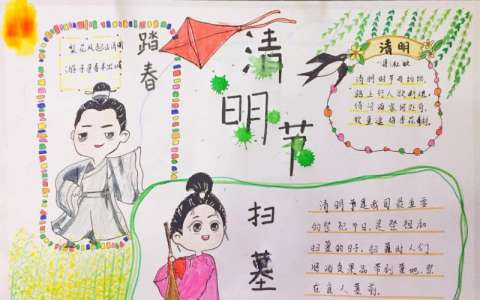 梨花风起正清明
游子寻春半出城
踏春
清明节
清明
唐 杜牧
清明时节雨纷纷,
路上行人欲断魂。
借问酒家何处有,
牧童遥指杏花村。
扫墓
清明节是我国最重要
的祭祀节日,是祭祖和
扫墓的日子。扫墓时人们
将酒食果品带到墓地,
在亲人墓前。